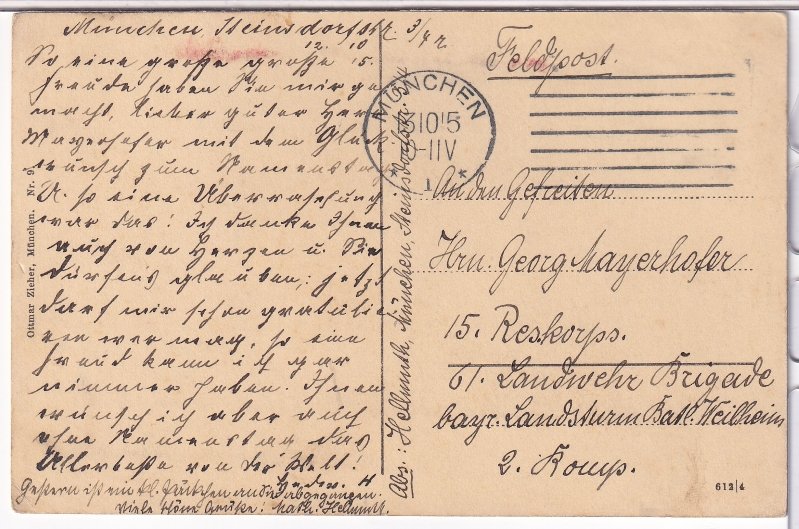 München, Steinsdorfstr. 3/4 r.
12. 10. 15.
So eine große große
Freude haben Sie mir ge
macht, lieber guter Herr
Mayerhofer mit dem Glück
wunsch zum Namenstag
U. so eine Überraschung
war das! Ich danke Ihnen
auch von Herzen u. Sie
dürfens glauben; jetzt
darf mir schon gratulie
ren wer mag, so eine
Freud kann ich gar
nimmer haben. Ihnen
wünsch ich aber auch
ohne Namenstag das
Allerbeste von der Welt!
Gestern ist ein kl. Päckchen an Sie abgegangen.
Viele schöne Grüße! Math. Hellmuth.
Abs.: Hellmuth, München, Steinsdorfstr. 3/4
Ottmar Zieher, München. Nr. 9
Feldpost.
MÜNCHEN
10 15
-11V
* 1 *
An den Gefreiten
Hrn. Georg Mayerhofer
15. Reskorps.
61. Landwehr Brigade
bayr. Landsturm Batl. Weilheim
2. Komp.
612|4